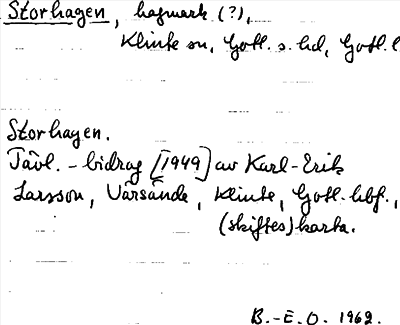 Storhagen, hagmark (?),
Klinte sn, Gotl. s. hd, Gotl. l
Storhagen.
Tävl.-bidrag [1949] av Karl-Erik
Larsson, Värsände, Klinte, Gotl. hbf.,
(skiftes)karta.
B.-E. O. 1962.